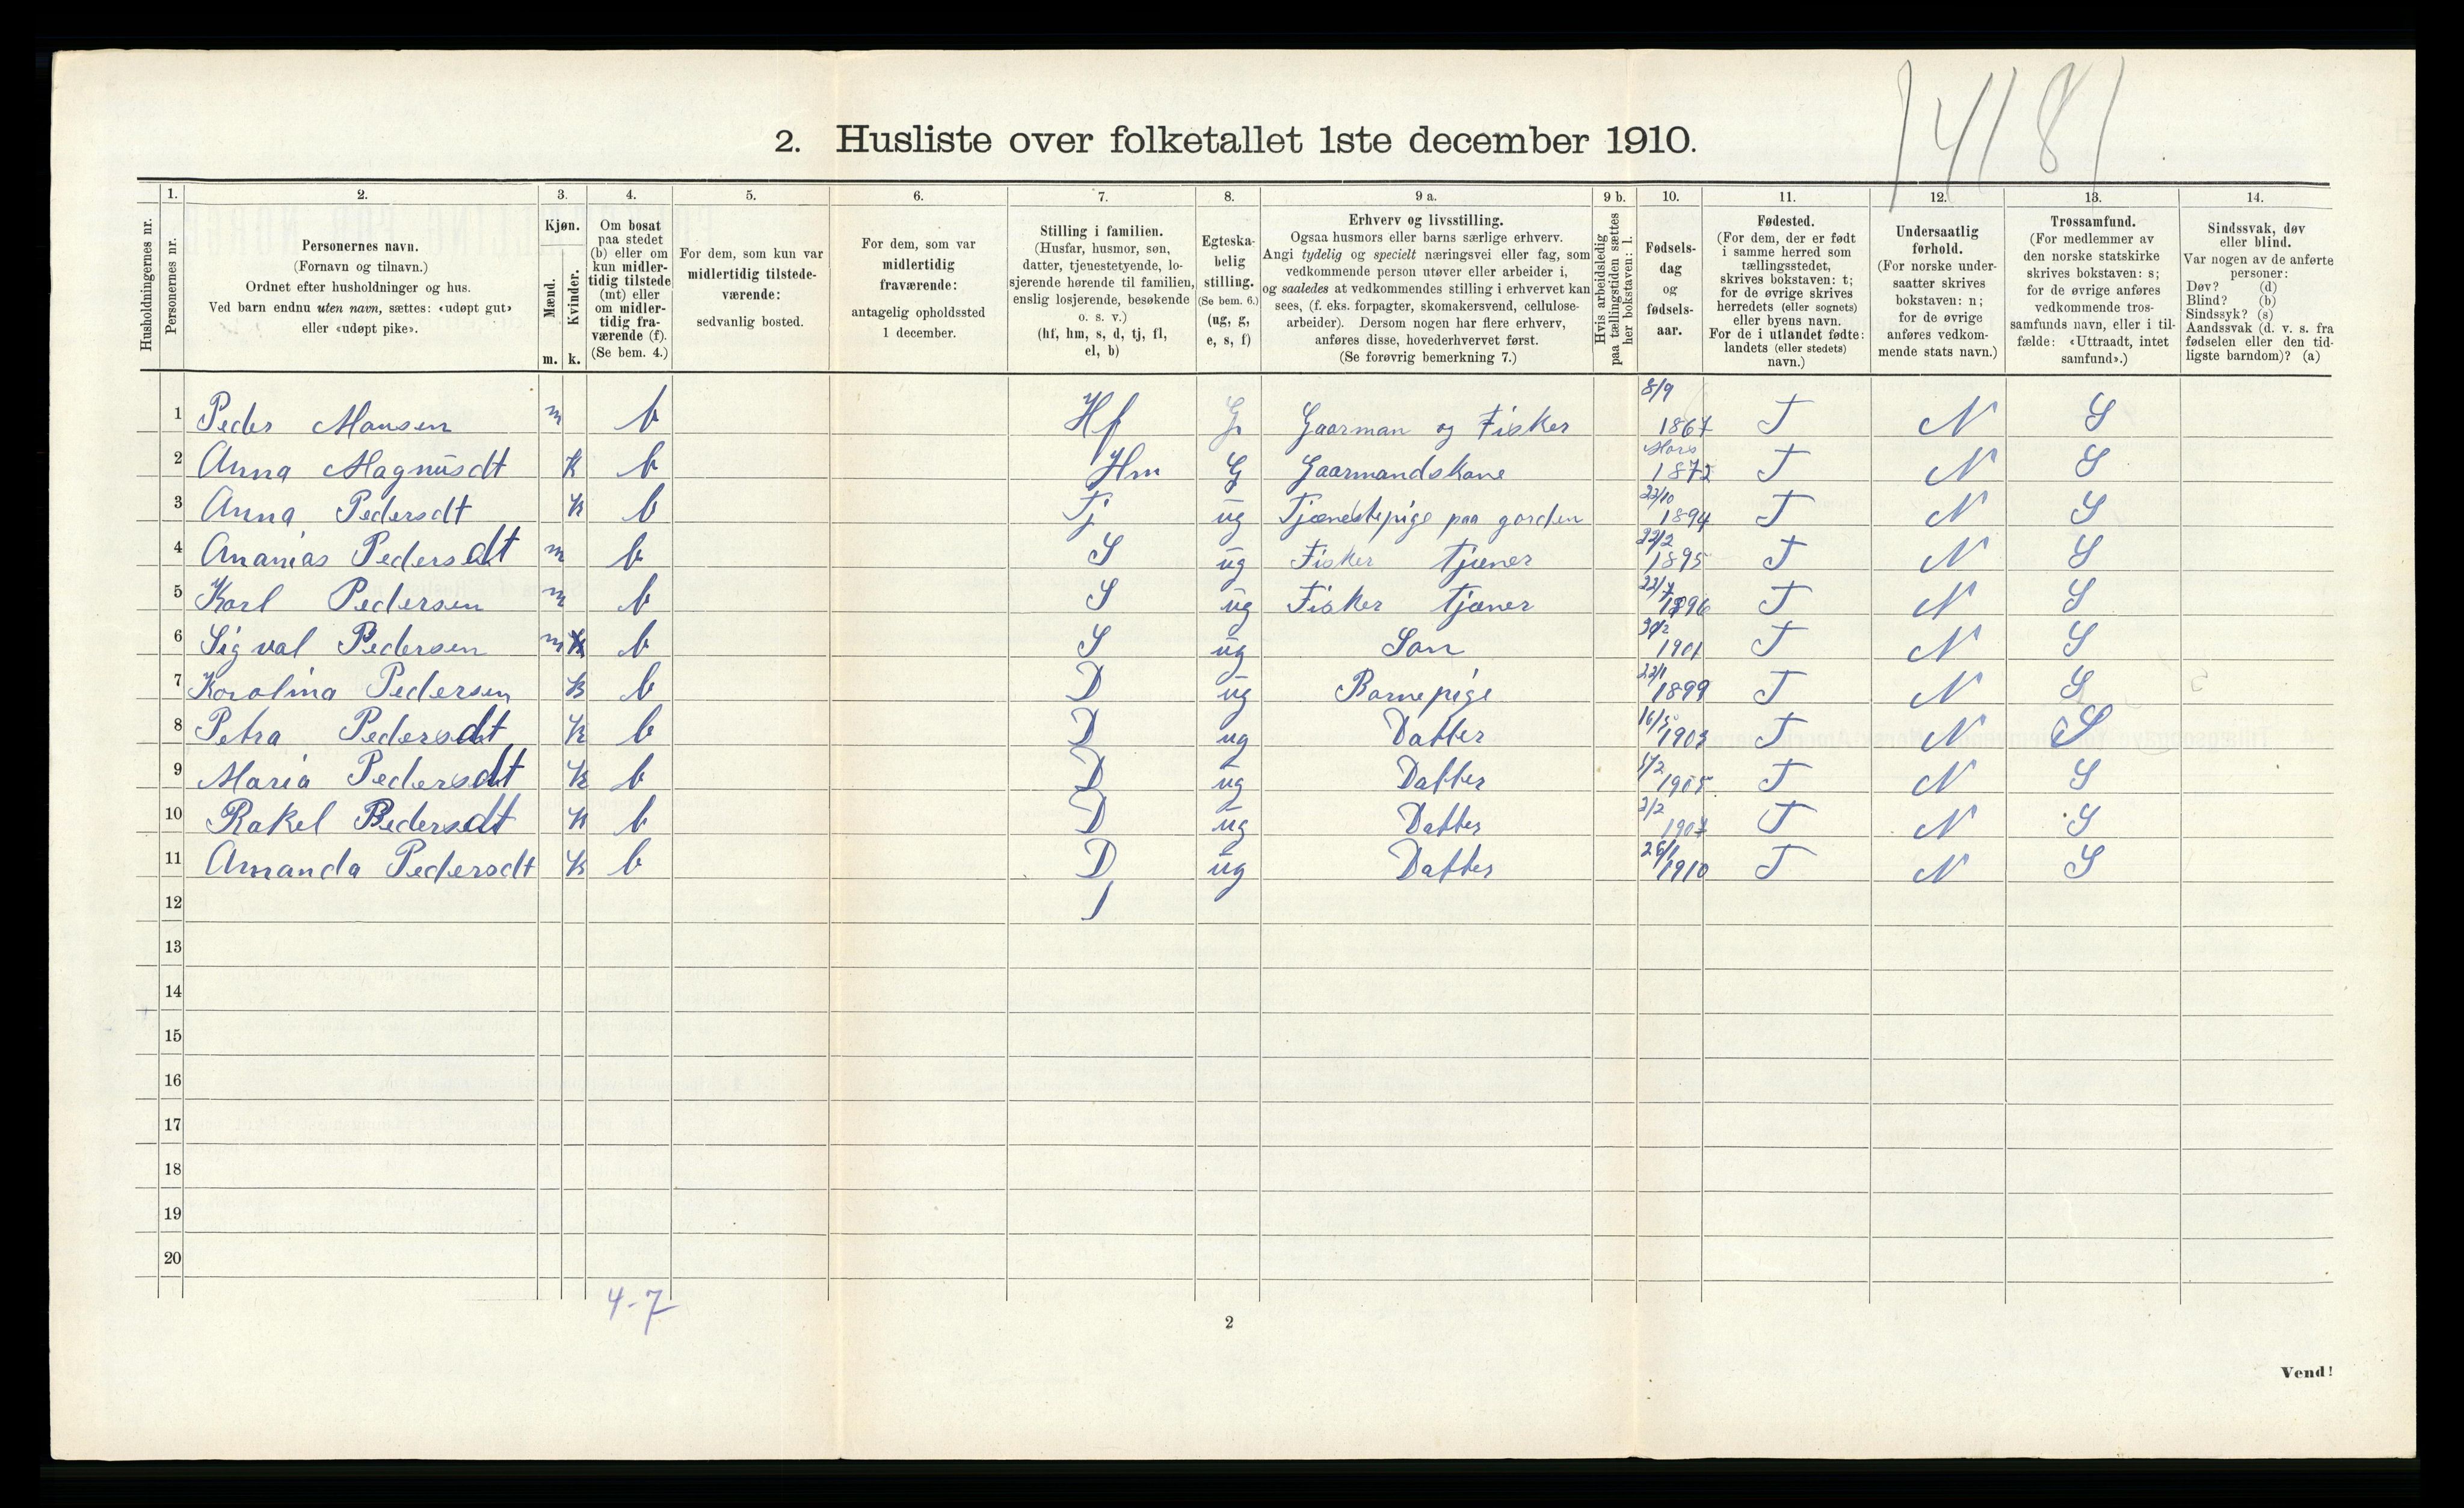 2. Husliste over folketallet 1ste december 1910.
1. 2. 3. 4. 5. 6. 7. 8. 9 a. 9 b. 10. 11. 12. 13. 14.
Husholdningernes nr.
Personernes nr.
Personernes navn.
(Fornavn og tilnavn.)
Ordnet efter husholdninger og hus.
Ved barn endnu uten navn, sættes: «udøpt gut»
eller «udøpt pike».
Kjøn.
Mænd.
Kvinder.
m. k.
Om bosat
paa stedet
(b) eller om
kun midler-
tidig tilstede
(mt) eller
om midler-
tidig fra-
værende (f).
(Se bem. 4.)
For dem, som kun var
midlertidig tilstede-
værende:
sedvanlig bosted.
For dem, som var
midlertidig
fraværende:
antagelig opholdssted
1 december.
Stilling i familien.
(Husfar, husmor, søn,
datter, tjenestetyende, lo-
sjerende hørende til familien,
enslig losjerende, besøkende
o. s. v.)
(hf, hm, s, d, tj, fl,
el, b)
Egteska-
belig
stilling.
(Se bem. 6.)
(ug, g,
e, s, f)
Erhverv og livsstilling.
Ogsaa husmors eller barns særlige erhverv.
Angi tydelig og specielt næringsvei eller fag, som
vedkommende person utøver eller arbeider i,
og saaledes at vedkommendes stilling i erhvervet kan
sees, (f. eks. forpagter, skomakersvend, cellulose-
arbeider). Dersom nogen har flere erhverv,
anføres disse, hovederhvervet først.
(Se forøvrig bemerkning 7.)
Hvis arbeidsledig
paa tællingstiden sættes
her bokstaven: l.
Fødsels-
dag
og
fødsels-
aar.
Fødested.
(For dem, der er født
i samme herred som
tællingsstedet,
skrives bokstaven: t;
for de øvrige skrives
herredets (eller sognets)
eller byens navn.
For de i utlandet fødte:
landets (eller stedets)
navn.)
Undersaatlig
forhold.
(For norske under-
saatter skrives
bokstaven: n;
for de øvrige
anføres vedkom-
mende stats navn.)
Trossamfund.
(For medlemmer av
den norske statskirke
skrives bokstaven: s;
for de øvrige anføres
vedkommende tros-
samfunds navn, eller i til-
fælde: «Uttraadt, intet
samfund».)
Sindssvak, døv
eller blind.
Var nogen av de anførte
personer:
Døv? (d)
Blind? (b)
Sindssyk? (s)
Aandssvak (d. v. s. fra
fødselen eller den tid-
ligste barndom)? (a)
1 Peder Monsen m b Hf G Gaarman og Fisker 8/9 1867 T N S
2 Anna Magnusdt K b Hm G Gaarmandskone Mars 1872 T N S
3 Anna Pedersdt K b Tj ug Tjenestepige paa gorden 22/10 1894 T N S
4 Ananias Pedersdt m b S ug Fisker tjæner 22/2 1895 T N S
5 Karl Pedersen m b S ug Fisker tjæner 22/7 1896 T N S
6 Sigval Pedersen m b S ug Søn 1901 T N S
7 Karolina Pedersen K b D ug Barnepige 22/1 1899 T N S
8 Petra Pedersdt K b D ug Datter 16/5 1903 T N S
9 Maria Pedersdt K b D ug Datter 1905 T N S
10 Rakel Pedersdt K b D ug Datter 2/2 1907 T N S
11 Amanda Pedersdt K b D ug Datter 26/1 1910 T N S
12
13
14
15
16
17
18
19
20
4-7
2
Vend!